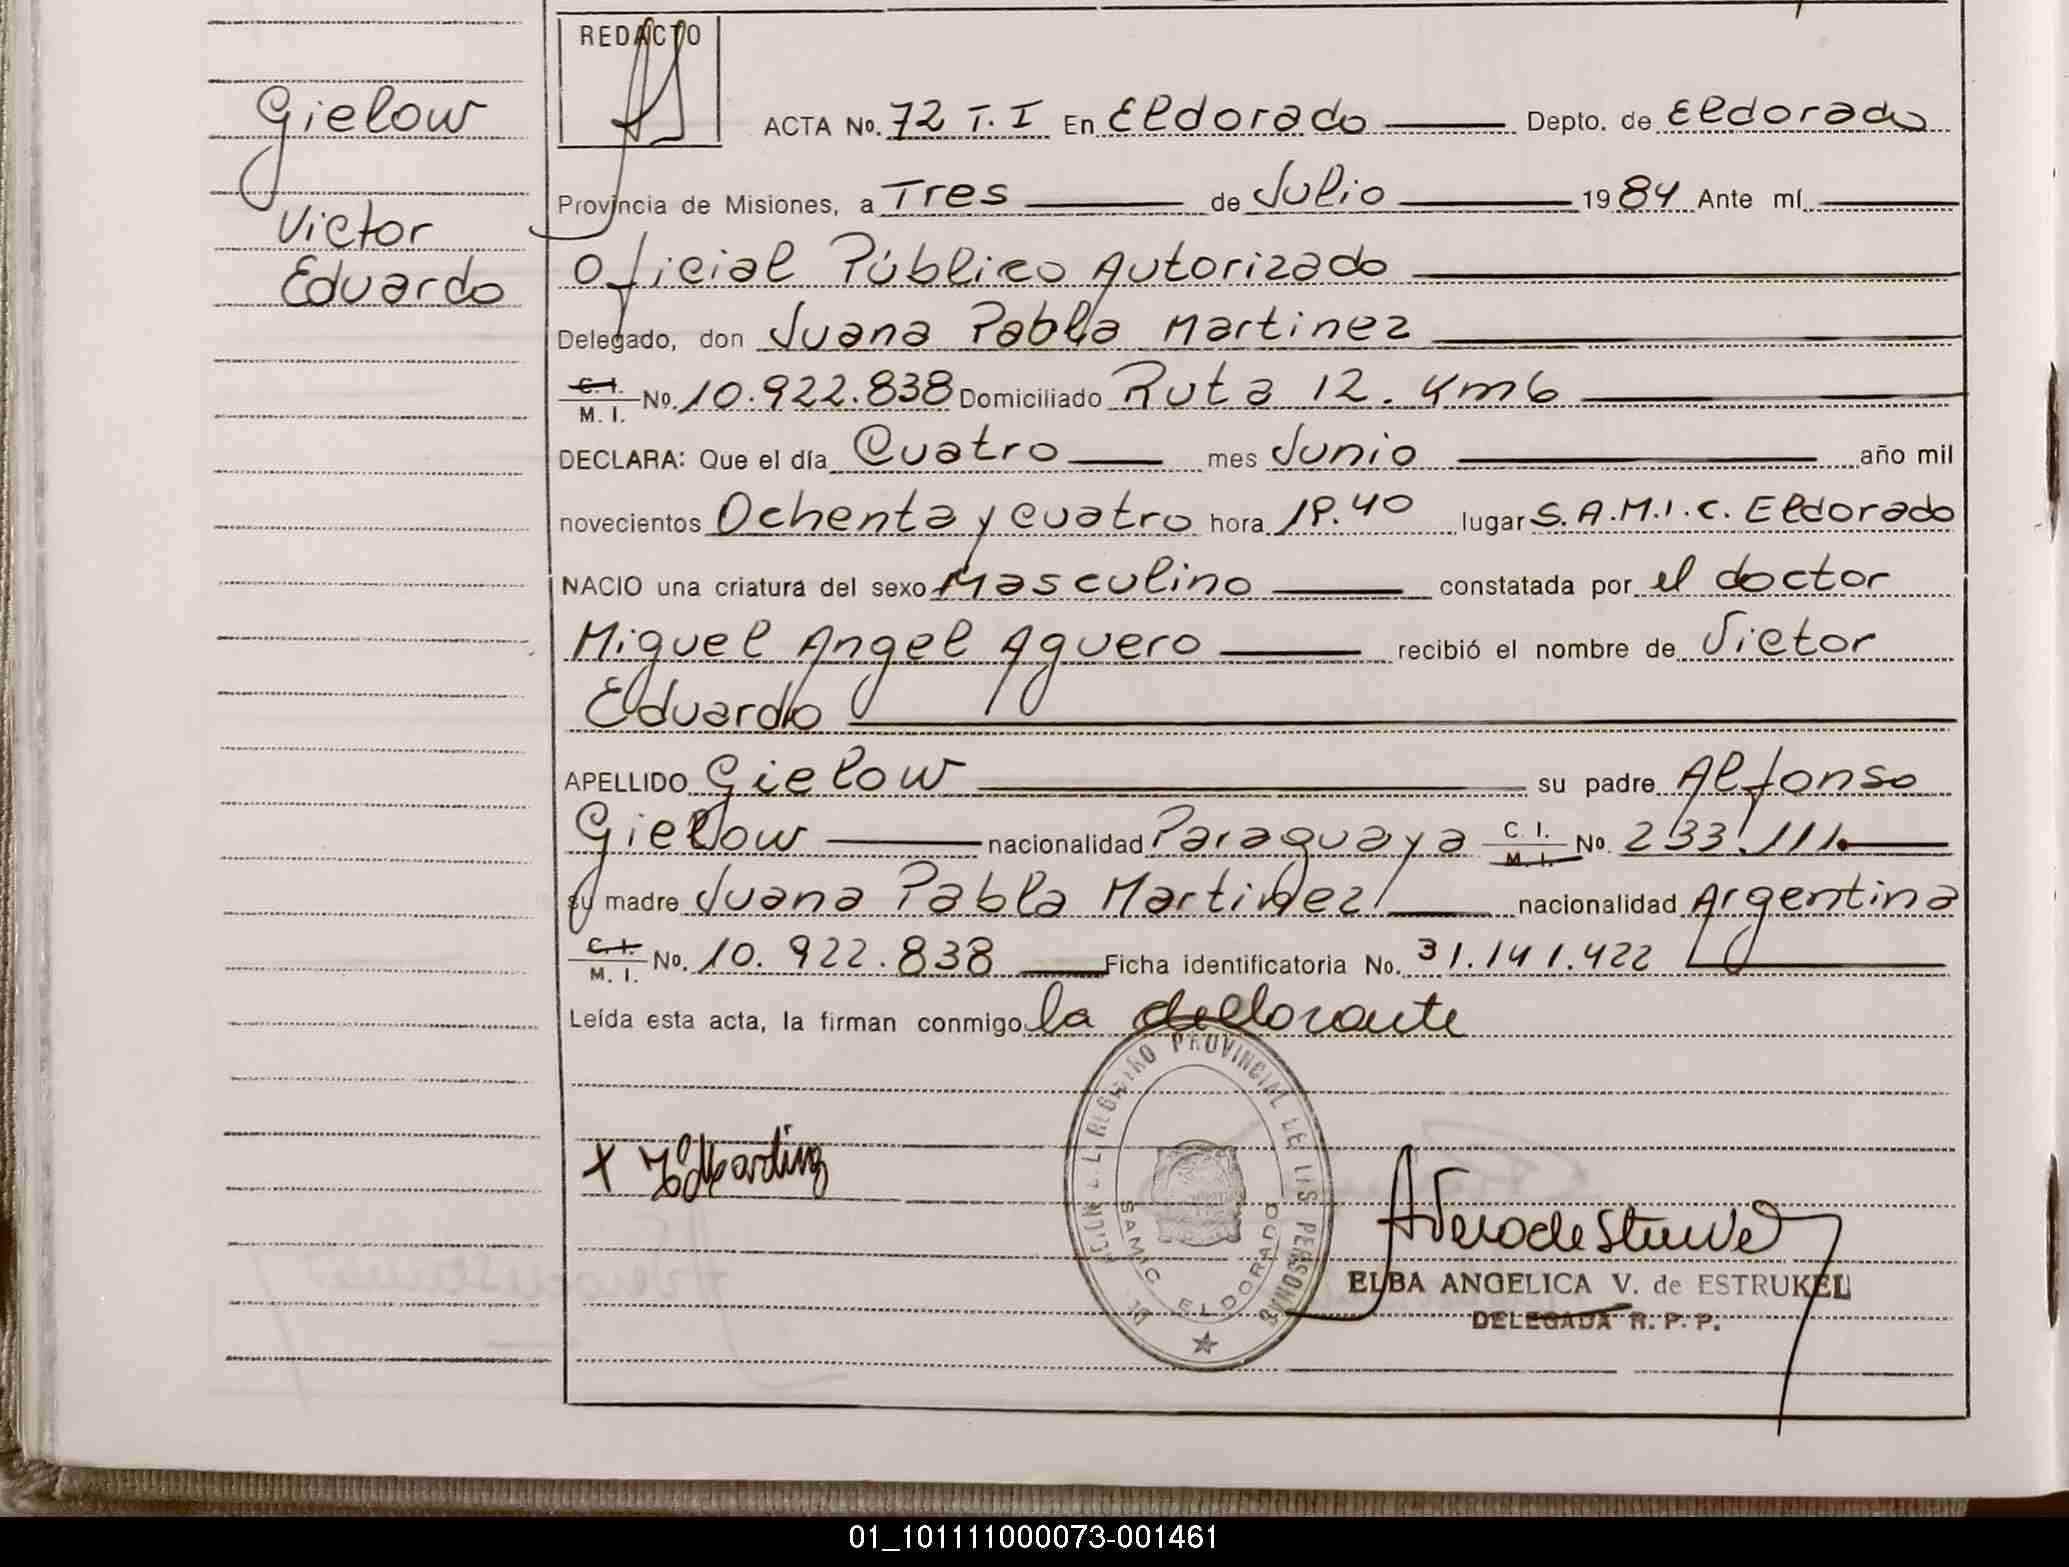 REDACTO
Gielow
Victor
Eduardo
ACTA No. 72 T. I En Eldorado Depto. de Eldorado
Provincia de Misiones, a Tres de Julio 1984 Ante mí
Oficial Público Autorizado
Delegado, don Juana Pabla Martinez
C. I. M. I. No. 10.922.838 Domiciliado Ruta 12. Km 6
DECLARA: Que el día Cuatro mes Junio año mil
novecientos Ochenta y cuatro hora lugar S. A. M. I. C. Eldorado
NACIO una criatura del sexo Masculino constatada por el doctor
Miguel Angel Aguero recibió el nombre de Victor
Eduardo
APELLIDO Gielow su padre Alfonso
Gielow nacionalidad Paraguaya C. I. M. I. No. 233.111.
su madre Juana Pabla Martinez nacionalidad Argentina
C. I. M. I. No. 10.922.838 Ficha identificatoria No. 31.141.422
Leída esta acta, la firman conmigo la declarante
REGISTRO PROVINCIAL DE LAS PERSONAS
SAMIC ELDORADO
ELBA ANGELICA V. de ESTRUKEL
DELEGADA R. P. P.
01_101111000073-001461